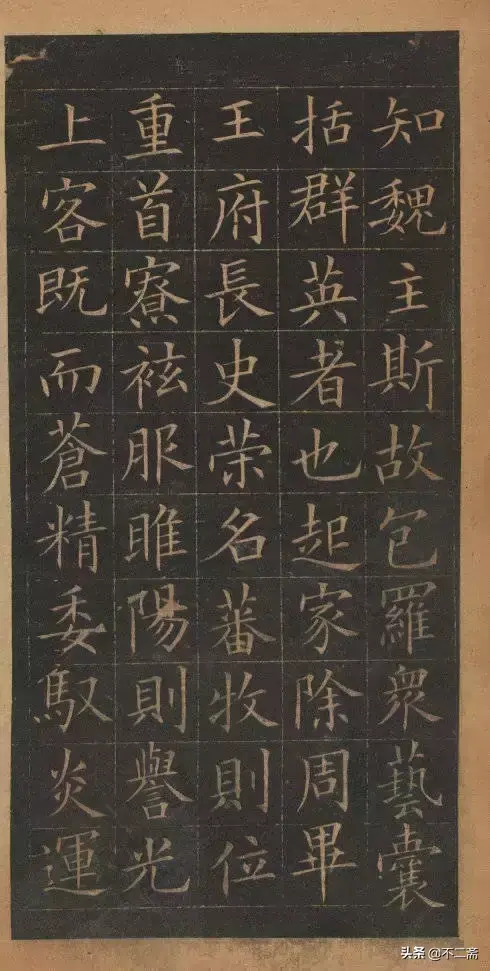 知魏主斯故包羅衆藝囊
括群英者也起家除周畢
王府長史荣名蕃牧則位
重首寮袨服睢陽則譽光
上客既而蒼精委馭炎運
头条 @不二斋